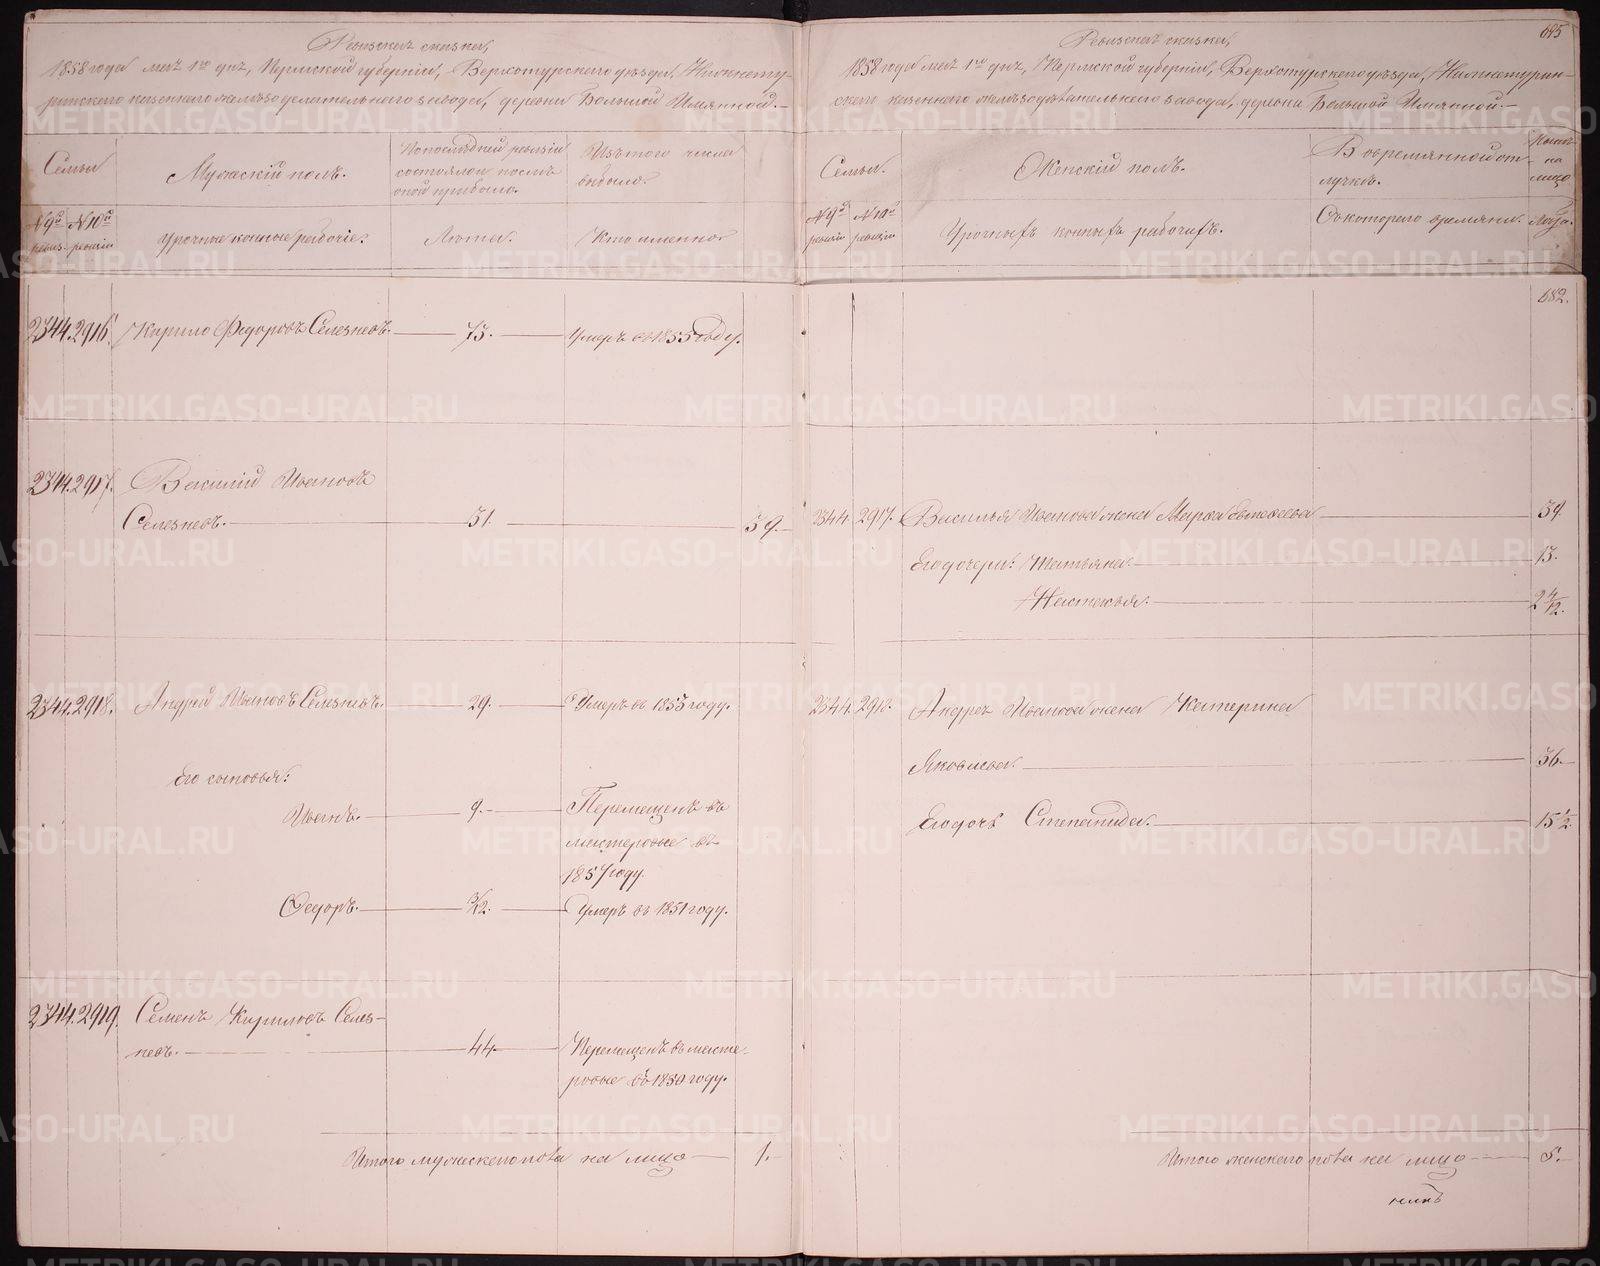 Ревизская сказка,
1858 года мая 1го дня, Пермской губернiи, Верхотурского уѣзда, Нижнету-
ринскаго казеннаго желѣзодѣлательнаго завода, деревни Большой Имянной.
Семьи
Мужескiй полъ.
По послѣдней ревизiи состояло и послѣ оной прибыло.
Изъ того числа выбыло.
№ 9й ревиз.
№ 10й ревизiи
Урочные конные рабочiе.
Лѣта.
Кто именно
2344. 2916. Кирило Федоровъ Селезневъ. 75. Умеръ въ 1855 году.
2344. 2917. Василiй Ивановъ
Селезневъ. 31. 39.
2344. 2918. Андрей Ивановъ Селезневъ. 29. Умеръ въ 1855 году.
Его сыновья:
Иванъ. 9. Перемещенъ въ
мастеровые въ
1857 году.
Федоръ. Умеръ въ 1851 году.
2344. 2919. Семенъ Кириловъ Селез-
невъ. 44. Перемещенъ въ масте-
ровые въ 1850 году.
Итого мужескаго пола на лицо 1.
685
Ревизская сказка,
1858 года мая 1го дня, Пермской губернiи, Верхотурского уѣзда, Нижнетурин-
скаго казеннаго желѣзодѣлательнаго завода, деревни Большой Имянной.
Семьи.
Женскiй полъ.
Во временной от-
лучкѣ.
Нынѣ на лицо
№ 9й ревизiи
№ 10й ревизiи
Урочныхъ конныхъ рабочихъ.
Съ котораго времяни.
Лѣта.
682.
2344. 2917. Василья Иванова жена Марфа 39.
Его дочери: Татьяна. 13.
Настасья. 2 4/12.
2344. 2918. Андрея Иванова жена Катерина
Яковлева. 36.
Его дочь Степанида. 15 1/2.
Итого женскаго пола на лицо 5.
METRIKI.GASO-URAL.RU